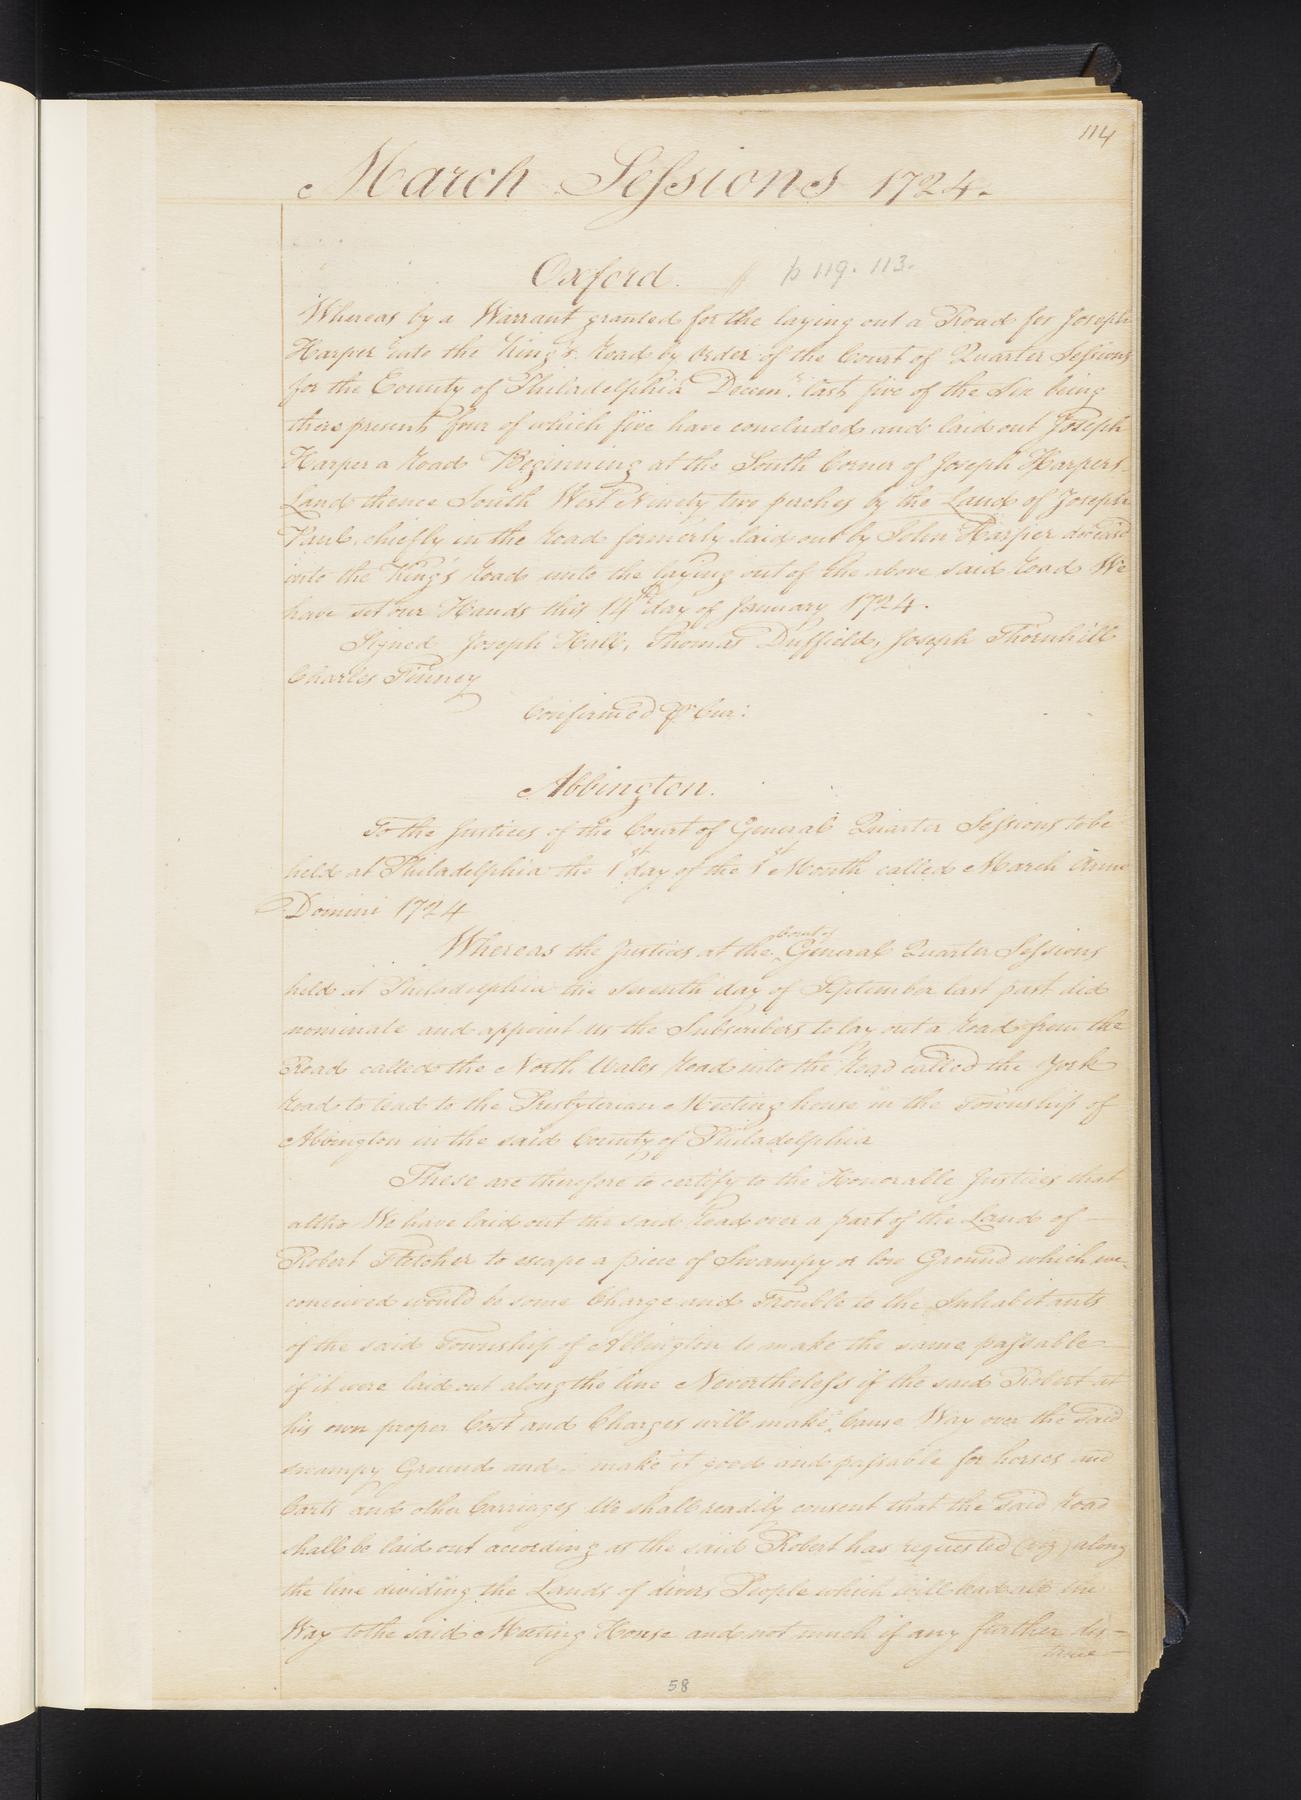 114
March Sessions 1724.
Oxford. // p 119. 113.
Whereas by a Warrant granted for the laying out a Road for Joseph
Harper into the King's Road by Order of the Court of Quarter Sessions
for the County of Philadelphia Decem.r last five of the Six being
there present four of which five have concluded and laid out Joseph
Harper a Road Beginning at the South Corner of Joseph Harpers
Land thence South West Ninety two perches by the Land of Joseph
Paul chiefly in the Road formerly laid out by John Harper
into the King's Road unto the laying out of the above said Road We
have set our Hands this 14th day of January 1724.
Signed Joseph Hall, Thomas Duffield, Joseph Thornhill
Charles Finney
Confirmed Pr Cur:
Abbington.
To the Justices of the Court of General Quarter Sessions to be
held at Philadelphia the 1st day of the 1st Month called March Anno
Domini 1724
Whereas the Justices at the Court of General Quarter Sessions
held at Philadelphia the seventh day of September last past did
nominate and appoint us the Subscribers to lay out a Road from the
Road called the North Wales Road into the Road called the York
Road to lead to the Presbyterian Meeting house in the Township of
Abbington in the said County of Philadelphia
These are therefore to certify to the Honorable Justices that
altho We have laid out the said Road over a part of the Land of
Robert Fletcher to escape a piece of Swampy or low Ground which we
conceived would be some Charge and Trouble to the Inhabitants
of the said Township of Abbington to make the same passable
if it were laid out along the line Nevertheless if the said Robert at
his own proper Cost and Charges will make a Cause Way over the said
swampy Ground and make it good and passable for horses and
Carts and other Carriages We shall readily consent that the said Road
shall be laid out according as the said Robert has requested (viz) along
the line dividing the Lands of divers People which will lead all the
Way to the said Meeting House and not much if any further dis=
tance
58